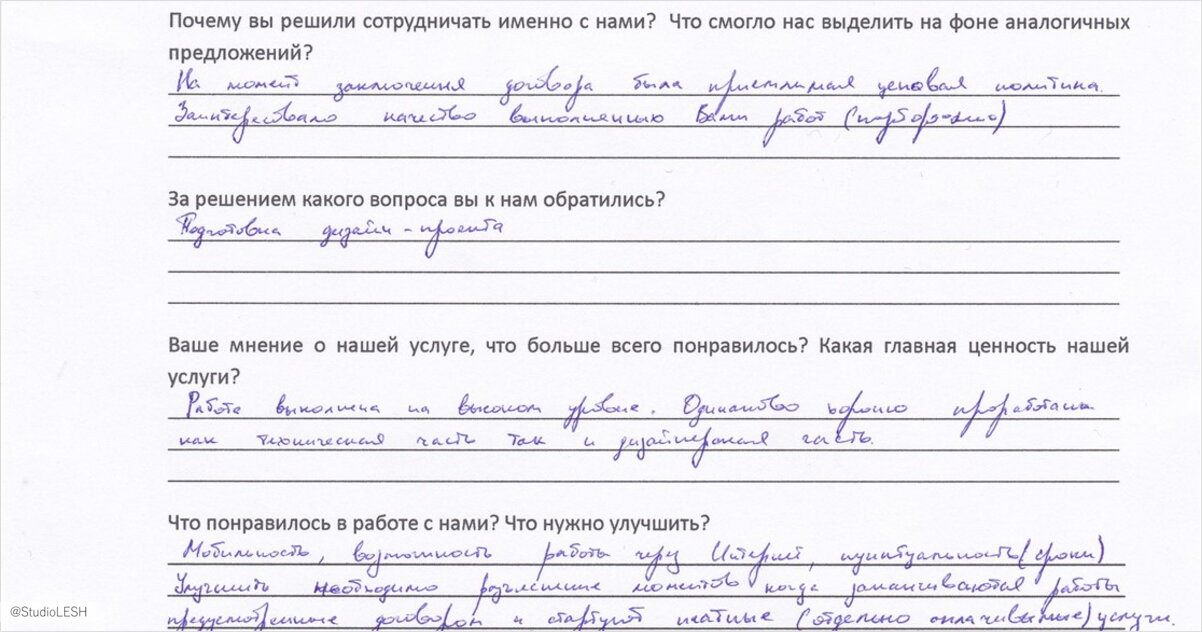 Почему вы решили сотрудничать именно с нами? Что смогло нас выделить на фоне аналогичных
предложений?
На момент заключения договора была приемлимая ценовая политика.
Заинтересовало качество выполненных Вами работ (портфолио)
За решением какого вопроса вы к нам обратились?
Подготовка дизайн-проекта
Ваше мнение о нашей услуге, что больше всего понравилось? Какая главная ценность нашей
услуги?
Работа выполнена на высоком уровне. Одинаково хорошо проработаны
как техническая часть так и дизайнерская часть.
Что понравилось в работе с нами? Что нужно улучшить?
Мобильность, возможность работы через Интернет, пунктуальность (сроки)
Улучшить необходимо разъяснение моментов когда заканчиваются работы
предусмотренные договором и стартуют платные (отдельно оплачиваемые) услуги.
@StudioLESH